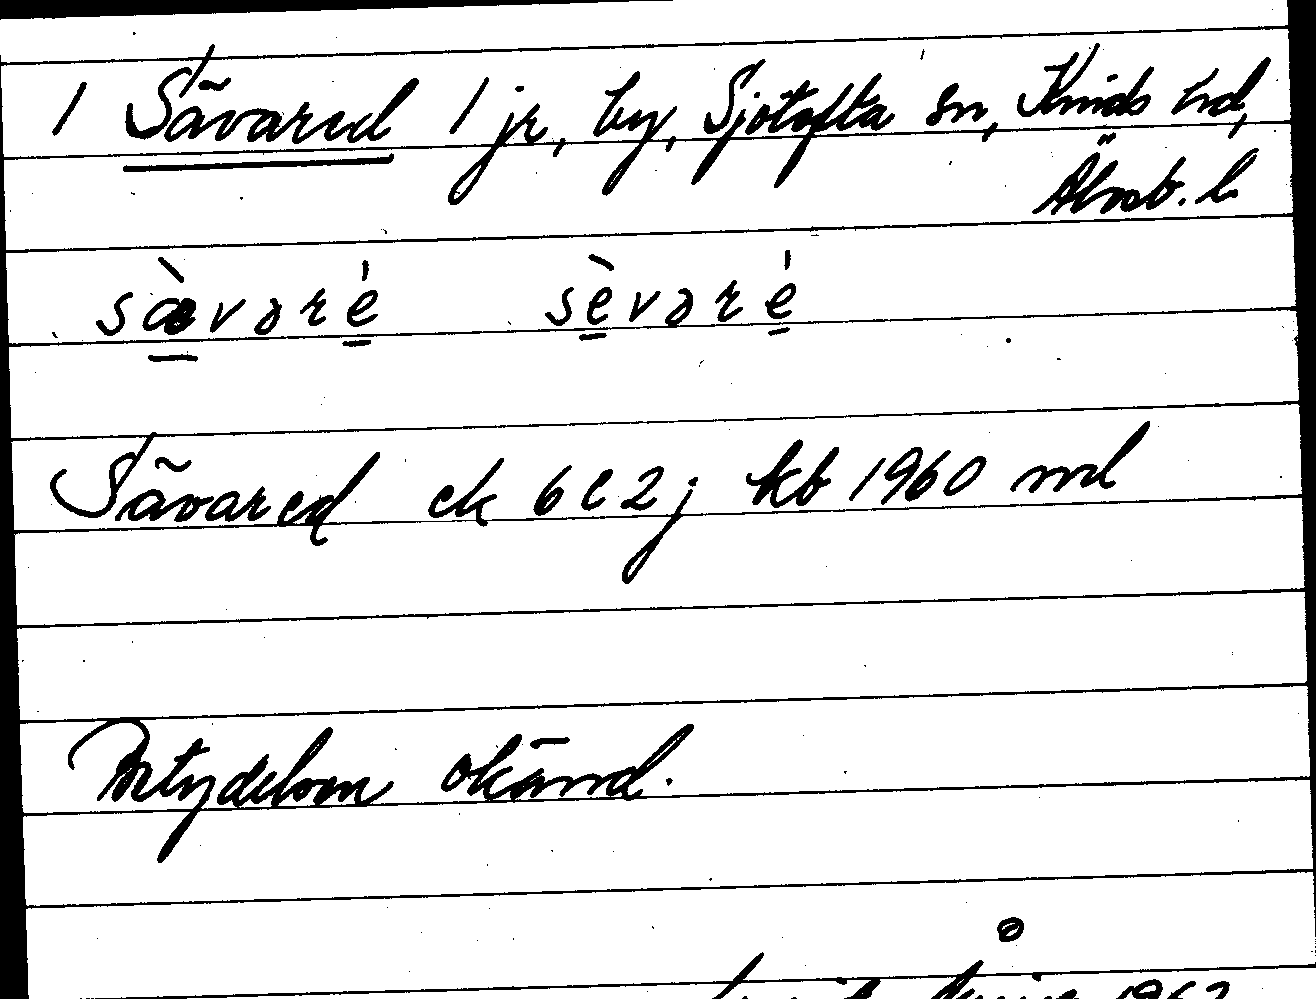 1 Sävared 1 jr, by, Sjötofta sn, Kinds hd,
Älvsb. l.
sæ̀vəré sèvəré
Sävared ek 6 e 2 j kb 1960 nvd
Betydelsen okänd.
1962